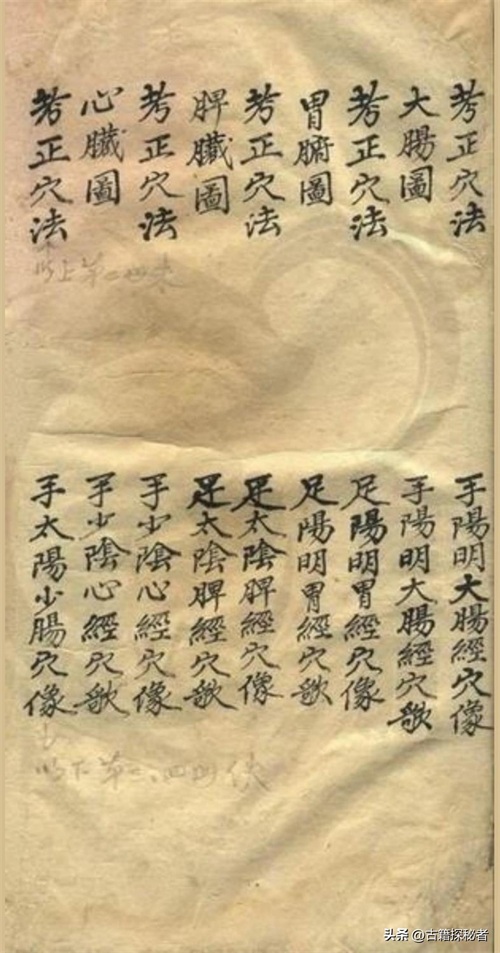 考正穴法
大腸圖
考正穴法
胃腑圖
考正穴法
脾臟圖
考正穴法
心臟圖
考正穴法
以上第二四
手陽明大腸經穴像
手陽明大腸經穴歌
足陽明胃經穴像
足陽明胃經穴歌
足太陰脾經穴像
足太陰脾經穴歌
手少陰心經穴像
手少陰心經穴歌
手太陽少腸穴像
以下第
头条 @古籍探秘者